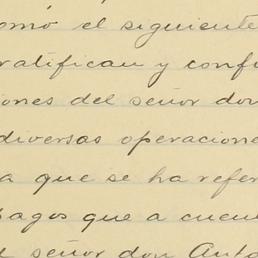 omó el siguiente
ratifican y confi
iones del señor don
diversas operacione
a que se ha refer
pagos que a cuen
l señor don Anto